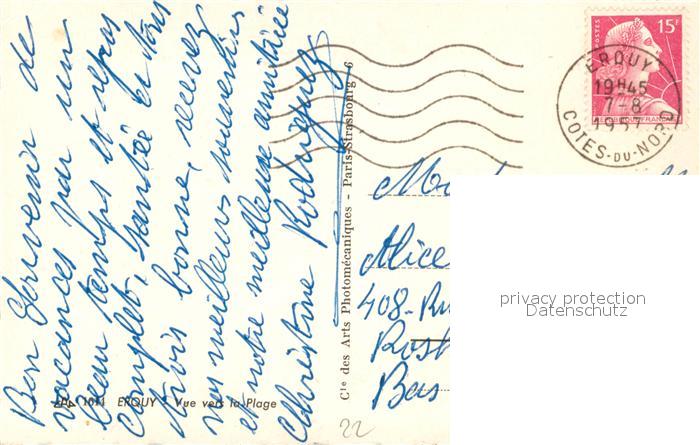 Bon Souvenir de
vacances par un
beau temps et repos
complet, santée de tous
trois bonne, recevez
vos meilleurs souvenirs
et notre meilleure amitiée
Christine Rodriguez
1011 ERQUY - Vue vers la Plage
Cie des Arts Photomécaniques - Paris-Strasbourg - 6
POSTES
15F
ERQUY
19H45
7-8
1957
COTES-DU-NORD
Alice
408-Ru
Bas
privacy protection
Datenschutz
22